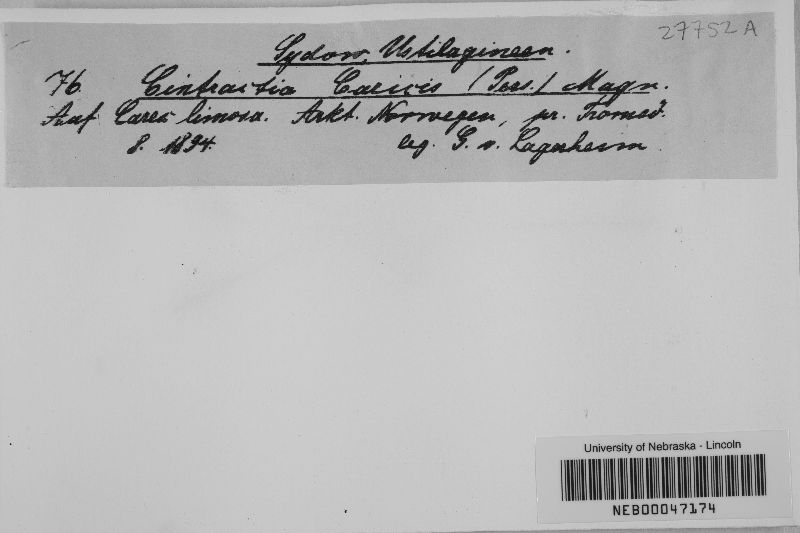 27752 A
Sydow, Ustilagineen.
76. Cintractia Caricis (Pers.) Magn.
Auf Carex limosa. Arkt. Norwegen, pr. Tromsö.
8. 1894. leg. G. v. Lagerheim
University of Nebraska - Lincoln
NEB00047174